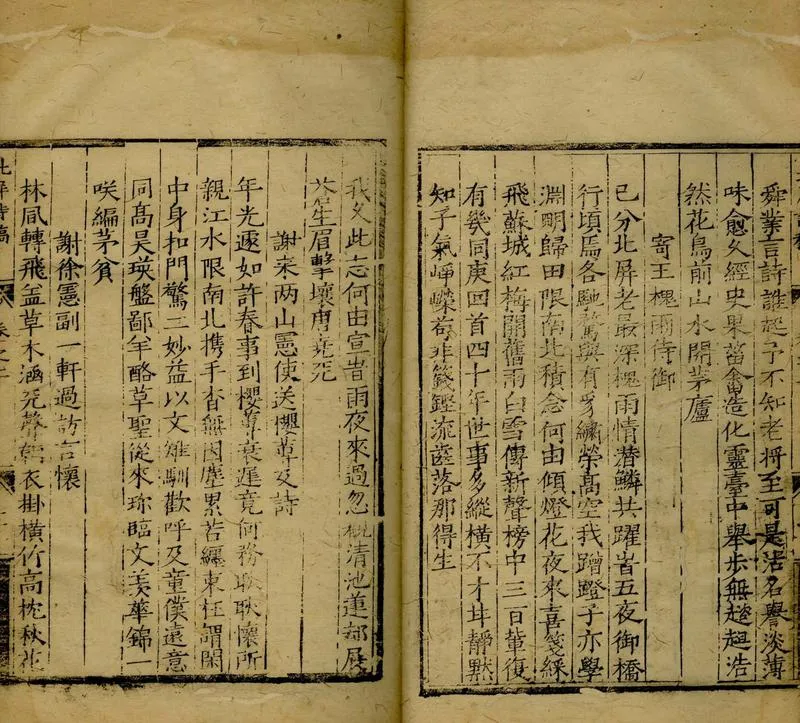 舜業言詩誰起予不知老將至可是浩名譽淡薄
味愈久經史果菑畬造化靈臺中舉步無趑趄浩
然花鳥前山水開茅廬
寄王槐雨侍御
已分北屏老最深槐雨情潛鱗共躍昔五夜御橋
行頃焉各馳騖與有豸繡榮高空我蹭蹬子亦學
淵明歸田限南北積念何由傾燈花夜來喜箋綵
飛蘇城紅梅開舊雨白雪傳新聲榜中三百輩復
有幾同庚回首四十年世事多縱橫不才甘靜默
知子氣崢嶸苟非籛鏗流齒落那得生
我父此志何由宣昔雨夜來過忽 清池蓮 展
眉擊壤唐堯
謝宋兩山憲使送櫻 詩
年光遽如許春事到櫻 衰遲竟何務耿耿懷所
親江水限南北攜手杳無因塵累苦纏束枉謂閑
中身扣門驚三妙益以文雉馴歡呼及童僕遠意
同高昊瑛盤鄙羊酪草聖從來珍臨文羨華錦一
咲編茅貧
謝徐憲副一軒過訪言懷
林風轉飛盆草木涵 聲 衣掛橫竹高枕秋花
北屏詩稿
卷之二